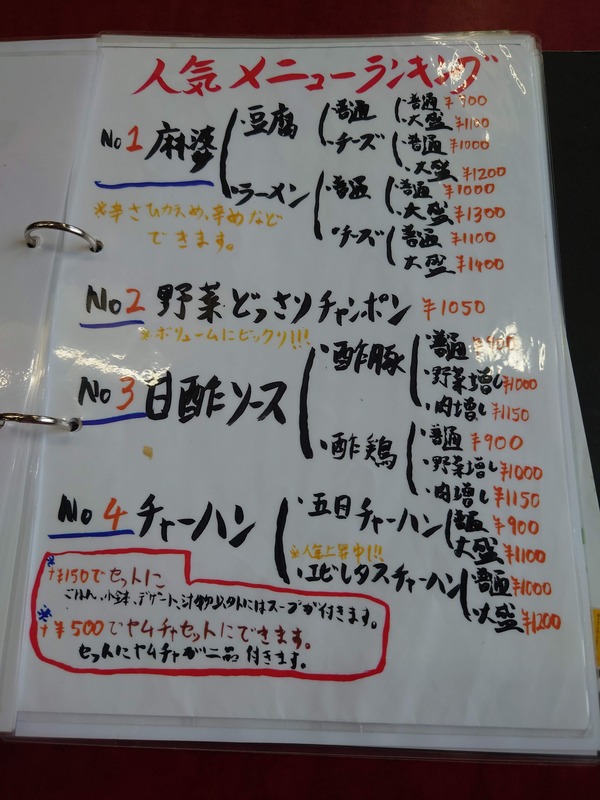 人気メニューランキング
No1 麻婆
・豆腐
・普通
・普通 ¥900
・大盛 ¥1100
・チーズ
・普通 ¥1000
・大盛 ¥1200
・ラーメン
・普通
・普通 ¥1000
・大盛 ¥1300
・チーズ
・普通 ¥1100
・大盛 ¥1400
※辛さひかえめ、辛めなど
できます。
No2 野菜どっさりチャンポン ¥1050
※ボリュームにビックリ!!!
No3 日酢ソース
・酢豚
・普通 ¥900
・野菜増し ¥1000
・肉増し ¥1150
・酢鶏
・普通 ¥900
・野菜増し ¥1000
・肉増し ¥1150
No4 チャーハン
・五目チャーハン
・普通 ¥900
・大盛 ¥1100
※人気上昇中!!!
・エビレタスチャーハン
・普通 ¥1000
・大盛 ¥1200
※+¥150でセットに
ごはん、小鉢、デザート、汁物以外にはスープが付きます。
※+¥500でヤムチャセットにできます。
セットにヤムチャが二品付きます。